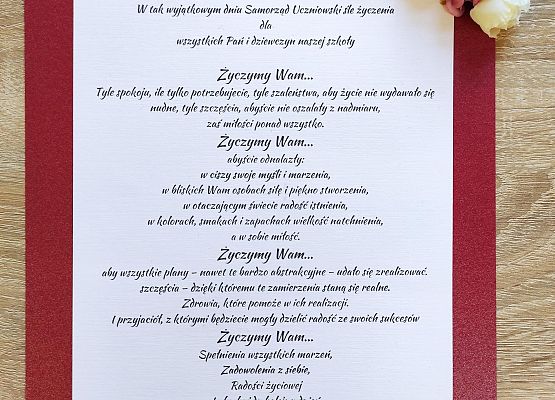 W tak wyjątkowym dniu Samorząd Uczniowski śle życzenia
dla
wszystkich Pań i dziewczyn naszej szkoły
Życzymy Wam...
Tyle spokoju, ile tylko potrzebujecie, tyle szaleństwa, aby życie nie wydawało się
nudne, tyle szczęścia, abyście nie oszalały z nadmiaru,
zaś miłości ponad wszystko.
Życzymy Wam...
abyście odnalazły:
w ciszy swoje myśli i marzenia,
w bliskich Wam osobach siłę i piękno stworzenia,
w otaczającym świecie radość istnienia,
w kolorach, smakach i zapachach wielkość natchnienia,
a w sobie miłość.
Życzymy Wam...
aby wszystkie plany – nawet te bardzo abstrakcyjne – udało się zrealizować.
szczęścia – dzięki któremu te zamierzenia staną się realne.
Zdrowia, które pomoże w ich realizacji.
I przyjaciół, z którymi będziecie mogły dzielić radość ze swoich sukcesów
Życzymy Wam...
Spełnienia wszystkich marzeń,
Zadowolenia z siebie,
Radości życiowej